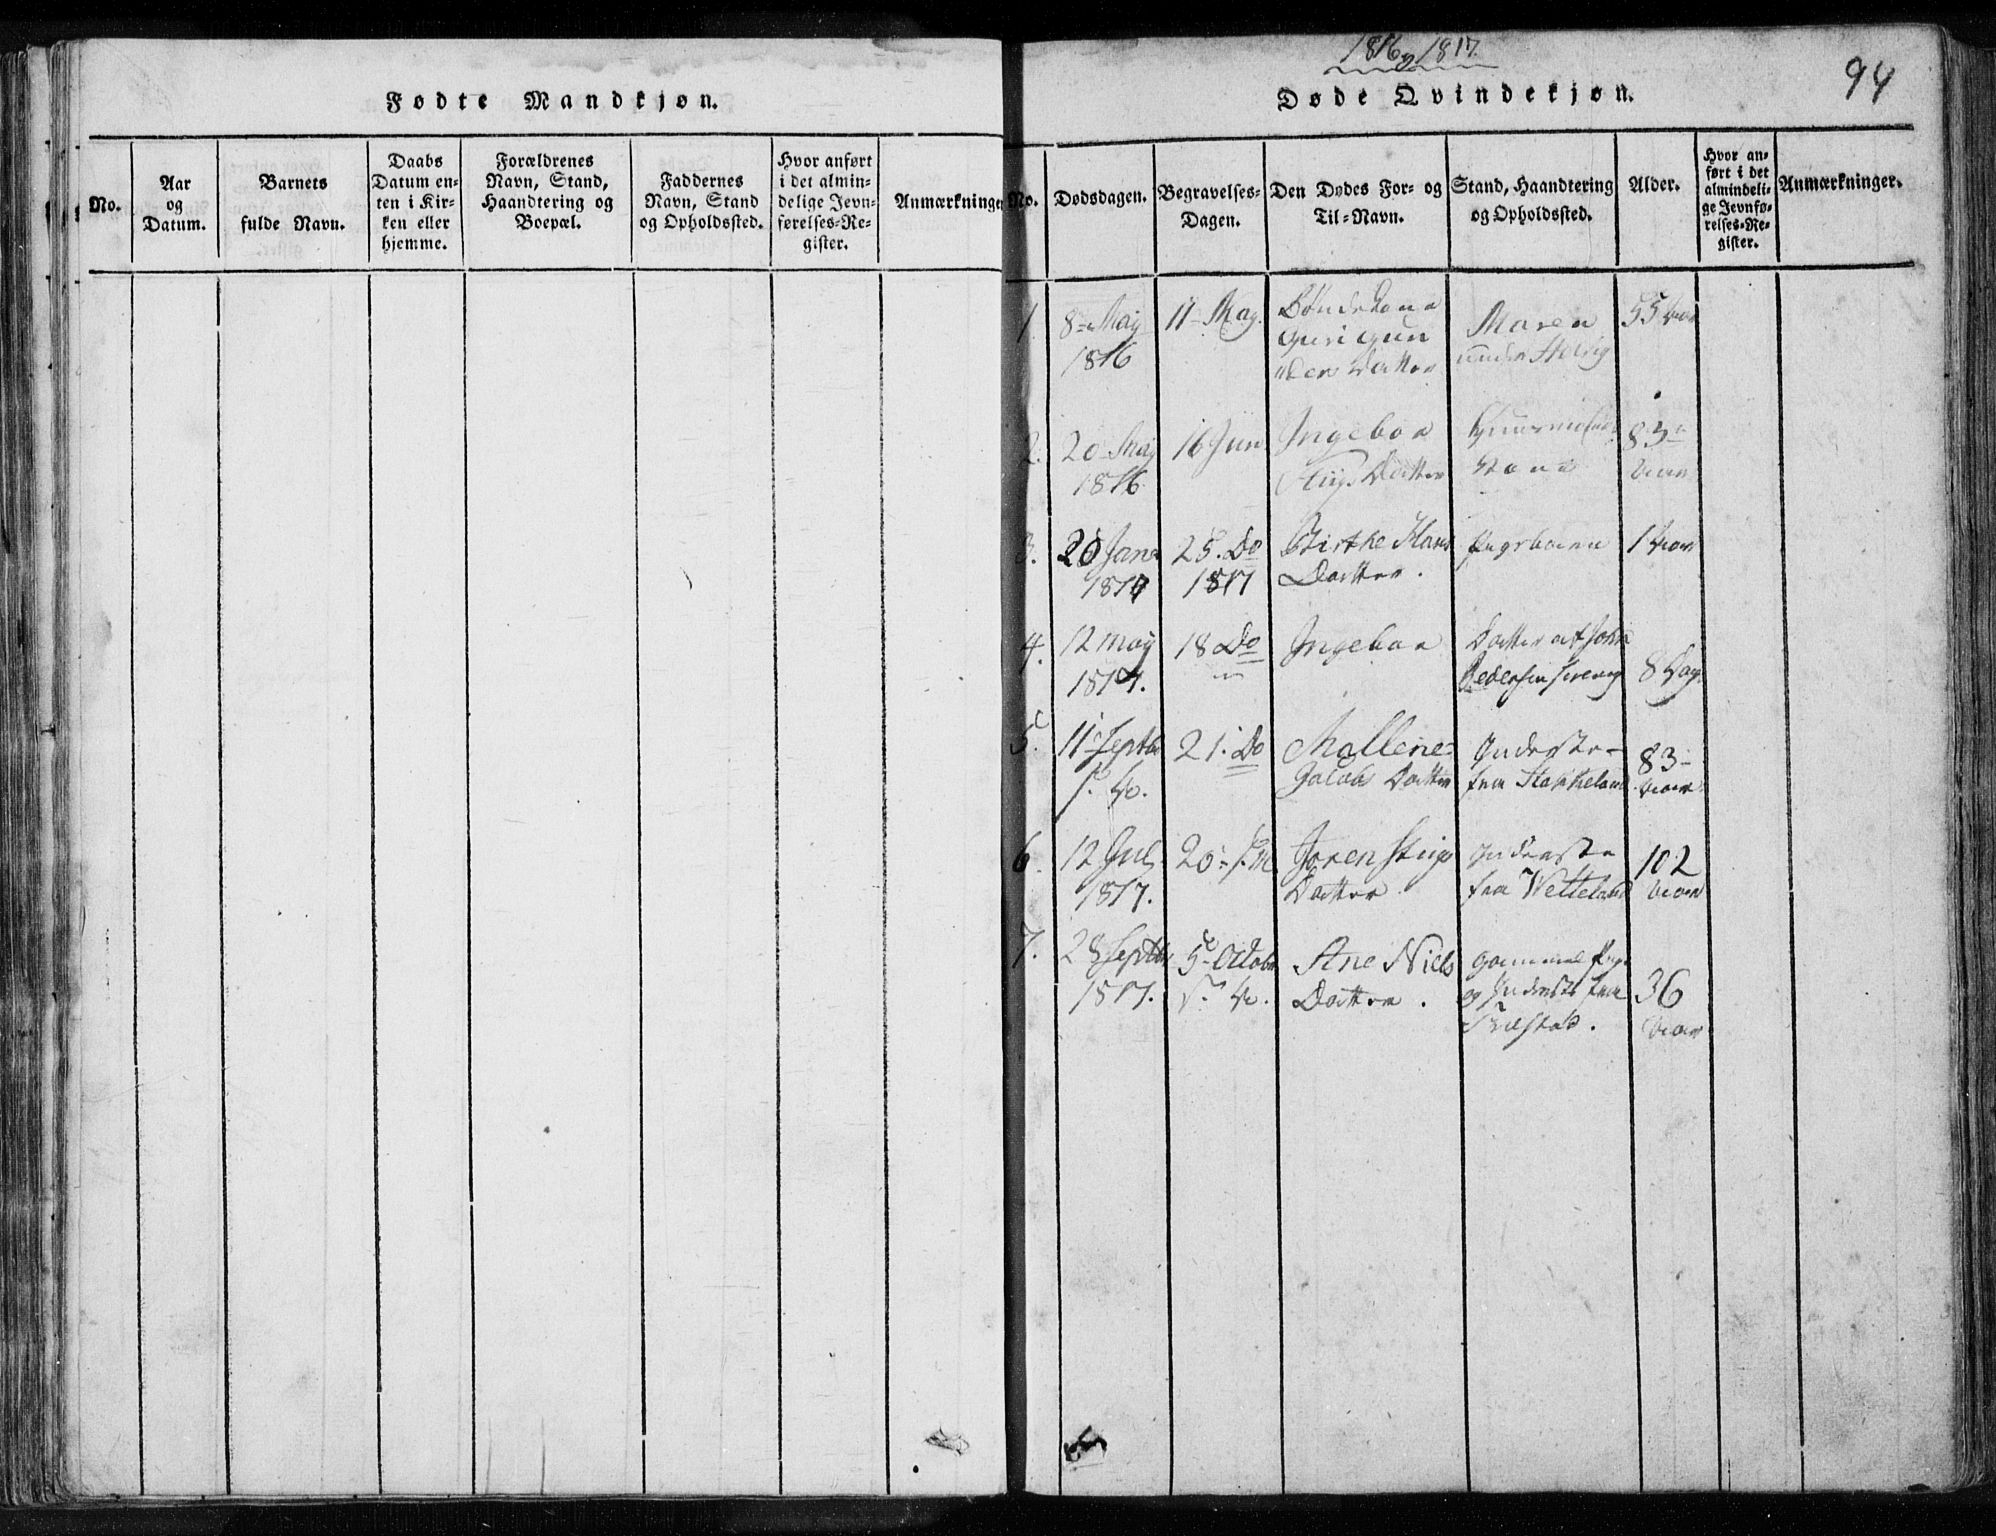 Fødte Mandkjøn.
No.
Aar
og
Datum.
Barnets
fulde Navn.
Daabs
Datum en-
ten i Kir-
ken eller
hjemme.
Forældrenes
Navn, Stand,
Haandtering og
Boepæl.
Faddernes
Navn, Stand
og Opholdssted.
Hvor anført
i det almin-
delige Jevn-
førelses-Re-
gister.
Anmærkninger
1816 og 1817.
94
Døde Qvindekjøn.
No.
Dødsdagen.
Begravelses-
Dagen.
Den Dødes For- og
Til-Navn.
Stand, Haandtering
og Opholdssted.
Alder.
Hvor an-
ført i det
almindeli-
ge Jevnfø-
relses-Re-
gister.
Anmærkninger.
1
8 Maj
1816
11 Maj.
Bondekone
Guri Gun
Datter
Maren
under
55 Aar
2.
20 Maj
1816
16 Jun
Ingebor
Stigs Datter
Huusmands
Kone
83
Aar
3.
20 Jan
1817
25. Do
1817
Birthe Hans
Datter.
Pigebarn
1 Aar
4.
12 may
1817.
18 Do
Ingebor
Datter af John
Pedersen
8 Dag.
5.
11 Septbr
21. Do
Mallene
Jacobs Datter
Inderste
fra Stokkeland
83
Aar
6.
12 Jul.
1817.
20
Joren Stigs
Datter
Inderste
fra Wetteland
102
Aar
7.
28 Septbr
1817.
5 Octobr
Ane Niels
Datter.
gammel Pige
og Inderste fra
36
Aar